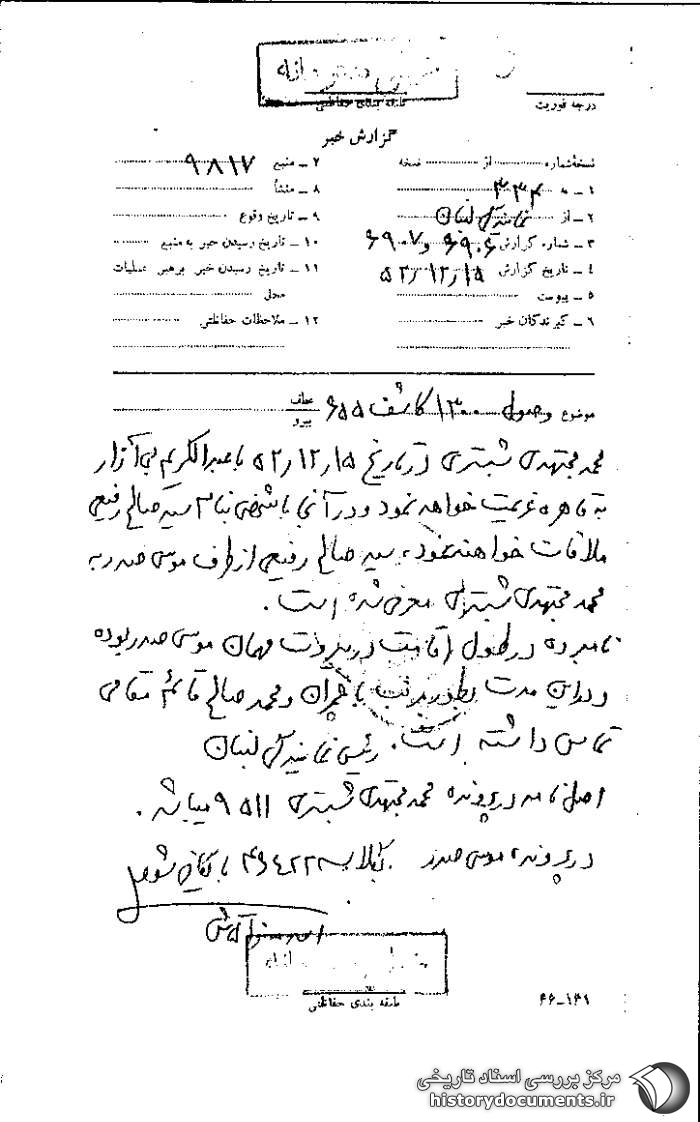 خیلی محرمانه
طبقه بندی حفاظتی
درجه فوریت
گزارش خبر
نسخهٔ شماره از نسخه
۱ ـ به ۳۳۴
۲ ـ از نمایندگی لبنان
۳ ـ شماره گزارش ۶۹۰۶ و ۶۹۰۷
۴ ـ تاریخ گزارش ۵۲/۱۲/۱۵
۵ ـ پیوست
۶ ـ گیرندگان خبر
۷ ـ منبع ۹۸۱۷
۸ ـ منشأ
۹ ـ تاریخ وقوع
۱۰ ـ تاریخ رسیدن خبر به منبع
۱۱ ـ تاریخ رسیدن خبر برهبر عملیات
محلی
۱۲ ـ ملاحظات حفاظتی
موضوع وصول ۱۳۰۰ کاشف ۶۵۵ عطف
پیرو
محمد مجتهدی شبستری در تاریخ ۵۲/۱۲/۱۵ با عبدالکریم بی‌آزار
به قاهره عزیمت خواهد نمود و در آنجا با شخصی بنام سید صالح رفیعی
ملاقات خواهند نمود، سید صالح رفیعی از طرف موسی صدر به
محمد مجتهدی شبستری معرفی شده است.
نامبرده در طول اقامت در بیروت مهمان موسی صدر بوده
و در این مدت بطور مرتب با چمران و محمد صالح قائم مقامی
تماس داشته است. رئیس نمایندگی لبنان
اصل نامه در پرونده محمد مجتهدی شبستری ۹۵۱۱ میباشد.
در پرونده موسی صدر بکلاسه ۴۹۴۲۲ بایگانی شود
طبقه بندی حفاظتی
۴۶-۱۴۱
مرکز بررسی اسناد تاریخی
historydocuments.ir